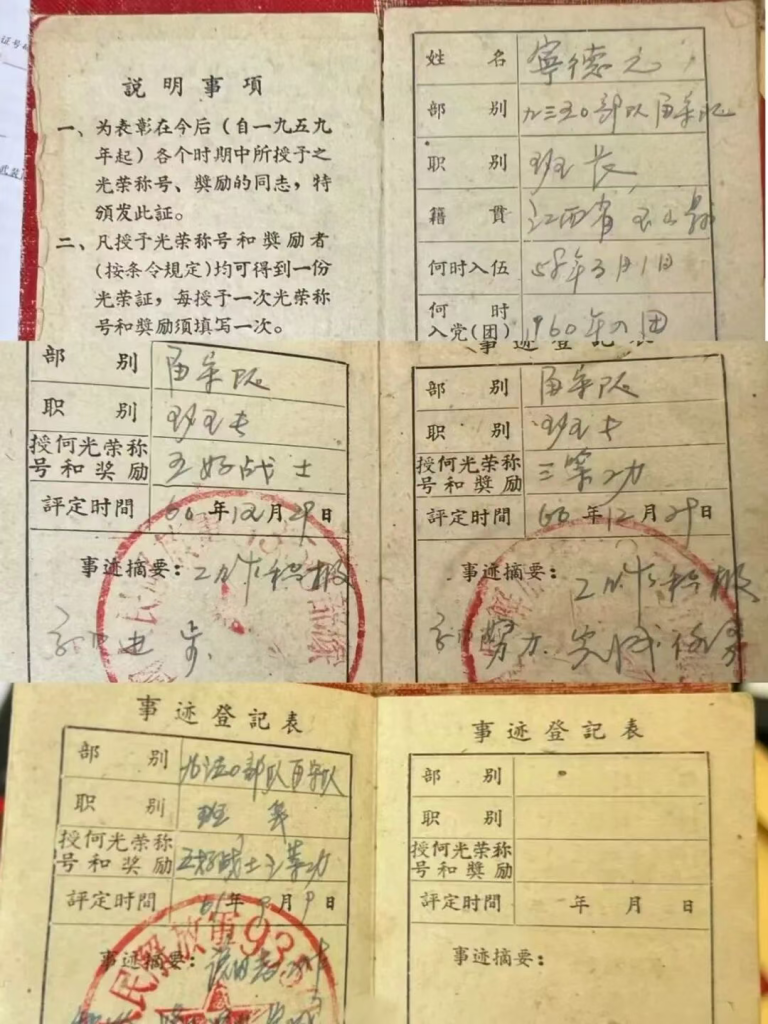 説明事項
一、为表彰在今后（自一九五九
年起）各个时期中所授予之
光荣称号、奬励的同志，特
頒发此証。
二、凡授予光荣称号和奬励者
(按条令規定)均可得到一份
光荣証，每授予一次光荣称
号和奬励須填写一次。
姓名 寧德元
部别 九三五〇部队
职别 班长
籍貫 江西省玉山县
何时入伍 58年3月1日
何时
入党(团) 1960年入团
部别
职别 班长
授何光荣称
号和奖励 五好战士
評定时間 60年12月29日
事迹摘要：工作积极
进步
事迹登記表
部别
职别 班长
授何光荣称
号和奬励 三等功
評定时間 60年12月29日
事迹摘要：工作积极
努力 完成任务
事迹登記表
部别 部队
职别 班长
授何光荣称
号和奖励 五好战士三等功
評定时間 61年9月9日
民解放軍93
事迹摘要：
事迹登記表
部别
职别
授何光荣称
号和奬励
評定时間 年 月 日
事迹摘要：